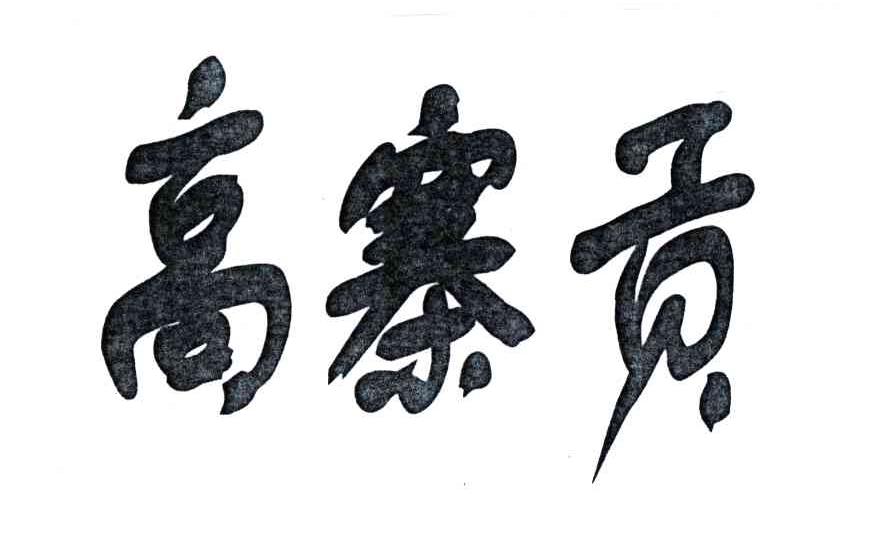 高寨贡